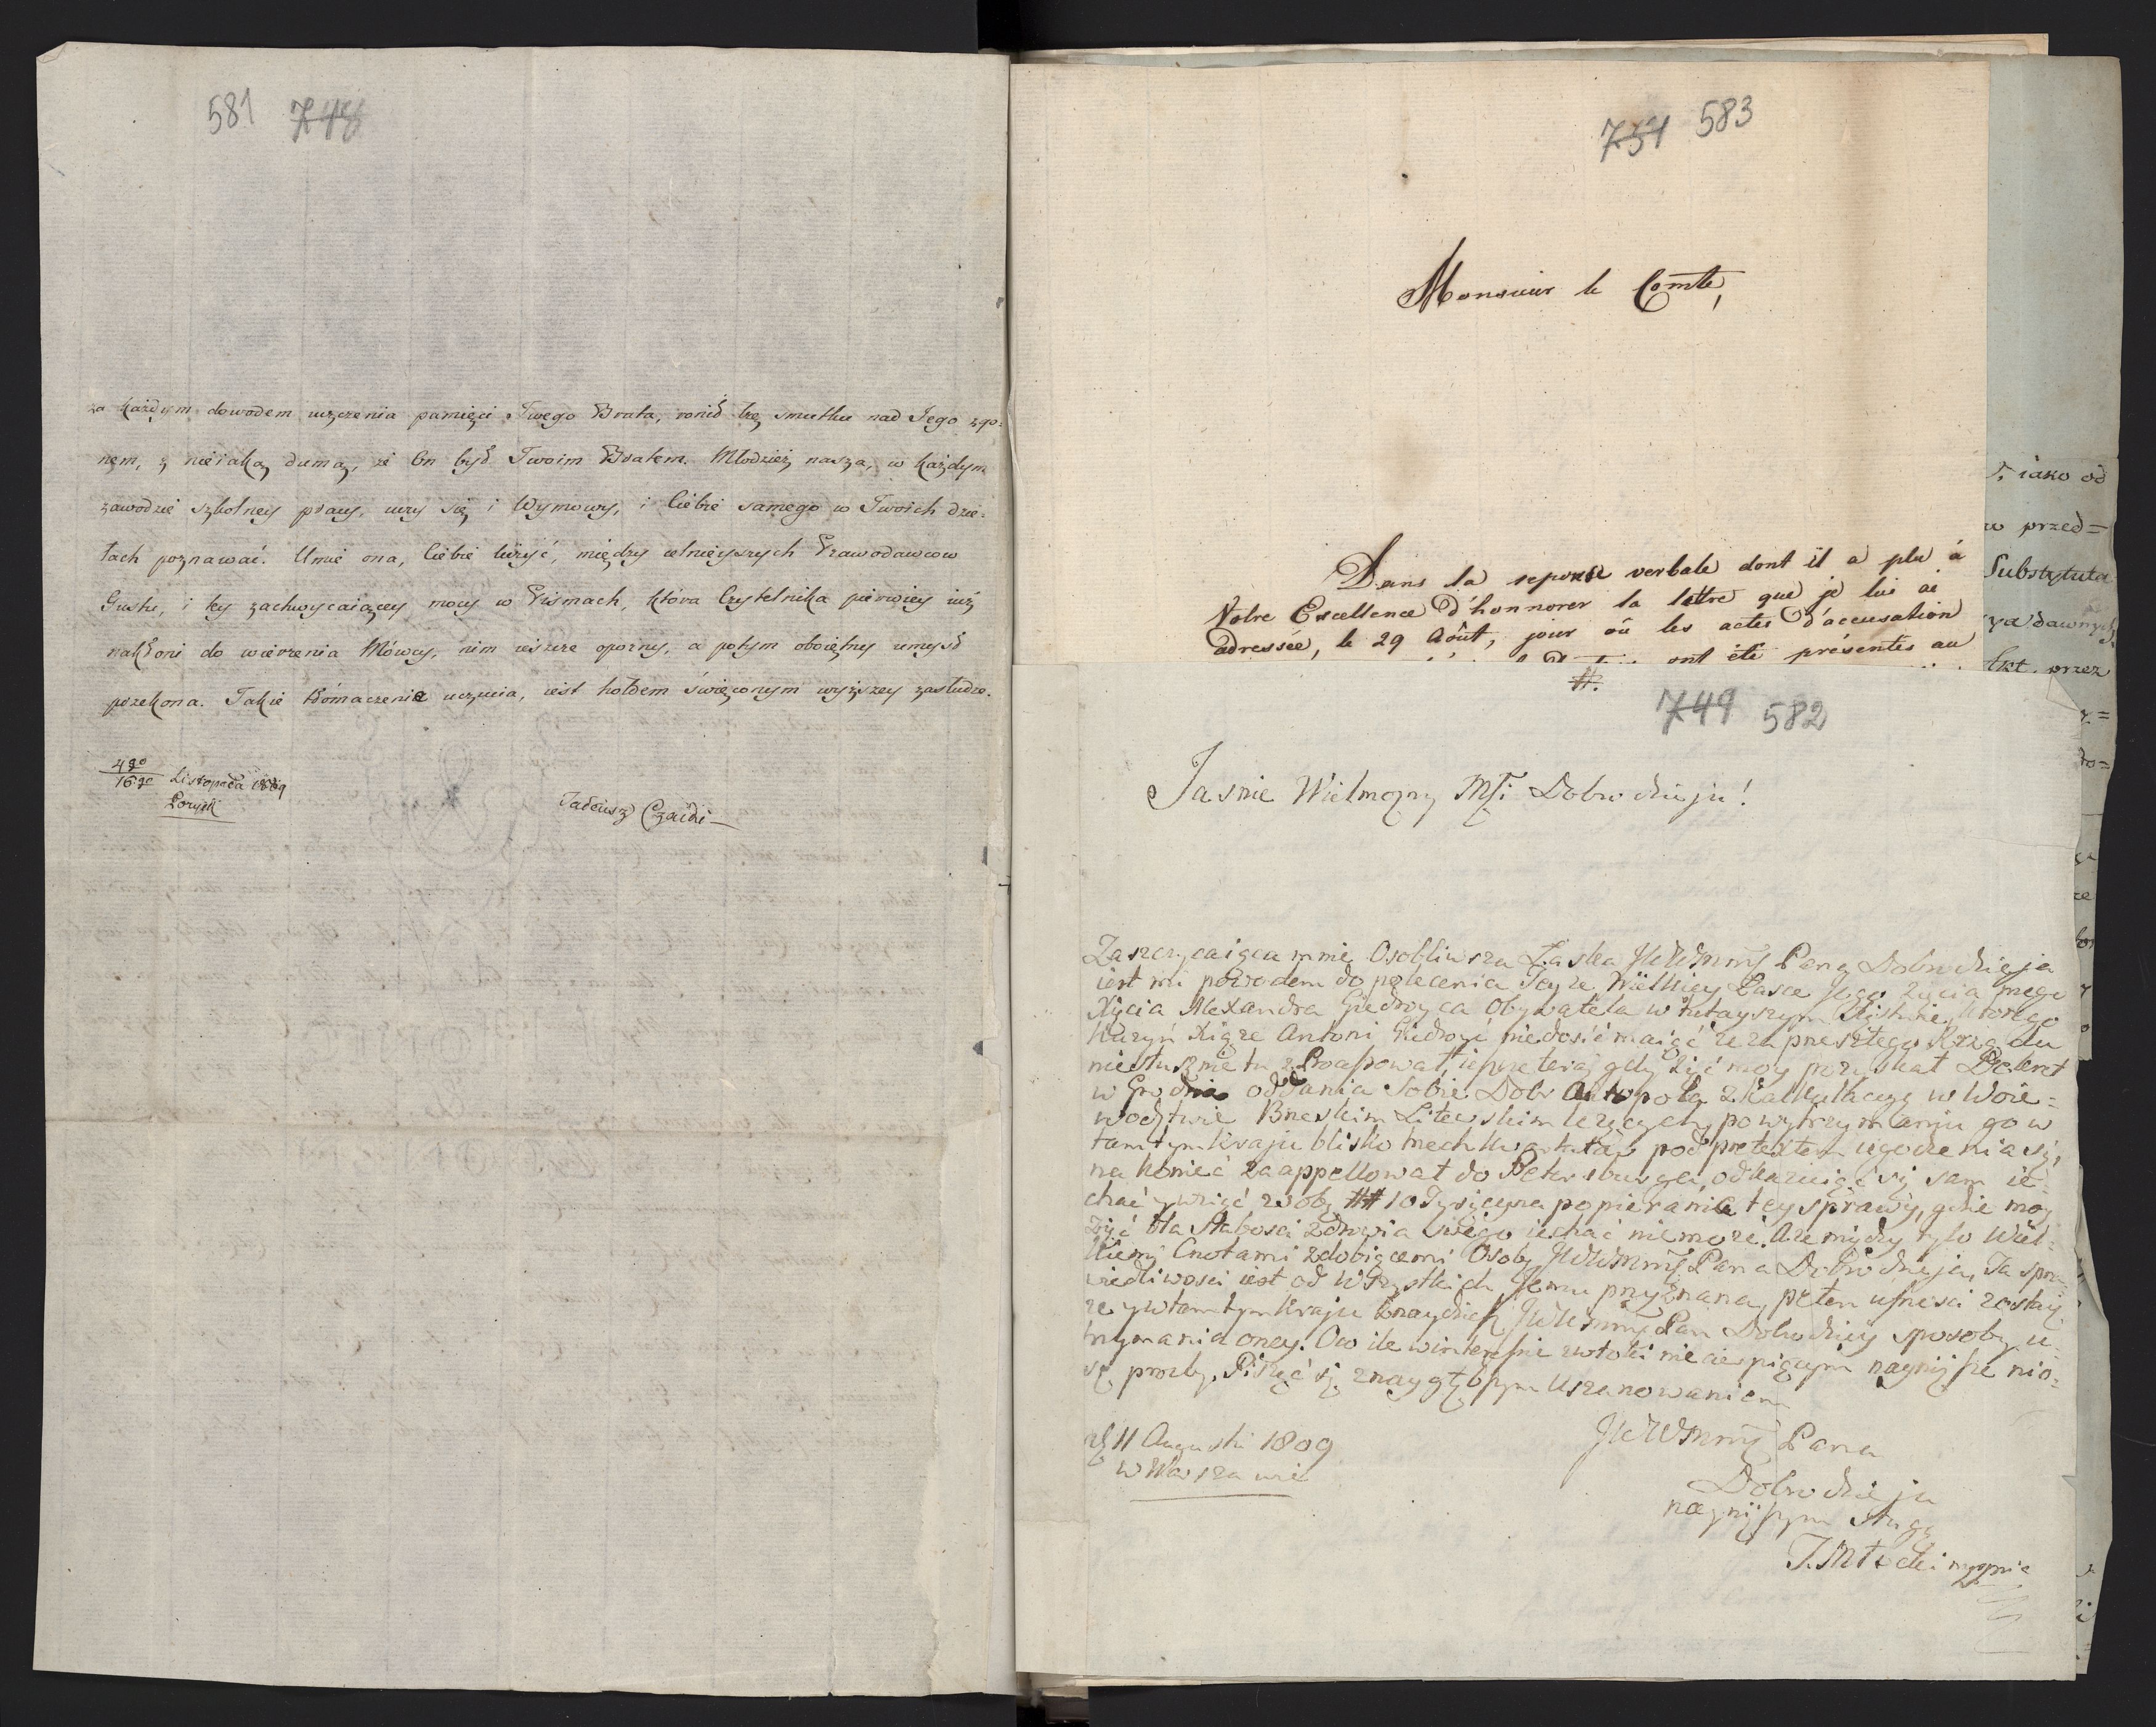 581 748
za każdym dowodem uczczenia pamięci Twego Brata, ronił łzę smutku nad Jego zgo=
nem, z nieiaką dumą, że On był Twoim Bratem. Młodzież nasza, w każdym
zawodzie szkolney pracy, uczy się i Wymowy, i Ciebie samego w Twoich dzie=
łach poznawać. Umie ona, Ciebie liczyć, między celnieyszych Prawodawcow
Gustu, i tey zachwycaiącey mocy w Pismach, która Czytelnika pierwiey iuż
nakłoni do wierzenia Mówcy, nim ieszcze oporny, a potym oboiętny umysł
przekona. Takie tłómaczenie uczucia, iest hołdem święconym wyższey zasłudze.
4go
16go Listopada 1809
Poryck
Tadeusz Czacki
751 583
Monsieur le Comte,
Dans la reponse verbale dont il a plu à
Votre Excellence d'honnorer la lettre que je lui ai
adressée, le 29 Août, jour où les actes d'accusation
ont été présentés au
iako od
w przed=
Substytuta
dawnych
przez
749 582
Jasnie Wielmożny Mśi Dobrodzieju!
Zaszczycaiąca mnie Osobliwsza Łaska JWWMmś Pana Dobrodzieja
iest mi powodem do polecenia Teyże Wielkiey Łasce Jego Zięcia mego
Xięcia Alexandra Giedroyca Obywatela w tutayszym Xięstwie, ktorego
Kuzyn Xiąże Antoni Giedroyć niedosić maiąć że za przeszłego Rządu
niesłusznie tu z Prosował, i teraz gdy Zięć moy pozyskał Dekret
w Grodnie oddania Sobie Dobr Antopola z Kalkulacyą w Woie=
wodztwie Brzeskim Litewskim leżących, po wytrzymaniu go w
tamtym kraju blisko trzech kwartałow pod pretextem ugodzenia się,
na koniec zaappellował do Petersburga, odkazuiąć się sam ie=
chać y wziąć z sobą ## 10 Tysięcy na popieranie tey sprawy, gdzie moy
Zięć dla słabosci zdrowia swego iechać niemoże. Aże między tylo Wiel=
kiemi Cnotami zdobiącemi Osobę JWWMmś Pana Dobrodzieja, Ta spra=
wiedliwosci iest od Wszystkich Jemu przyznana, przeto ufnosci zostaię
że y w tamtym kraju znaydzieh JWWMmś Pan Dobrodziey sposoby u=
trzymania oney. Oco ile w interessie zwłoki niecierpiącym nayniższe nio=
sę prozby, Pisząć się z naygłębszym Uszanowaniem
11 Augusti 1809
w Warszawie
JWWMmś Pana
Dobrodzieja
nayniższym sługą